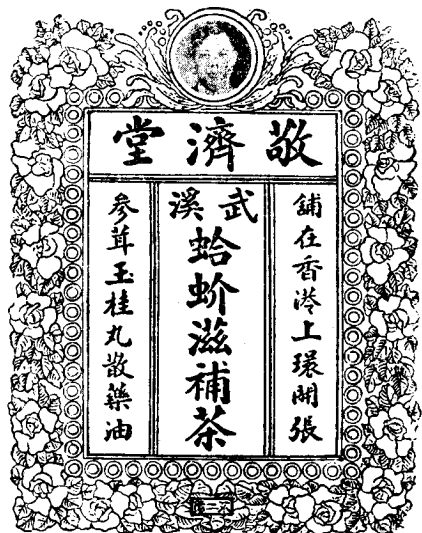 敬濟堂
舖在香港上環開張
武溪
蛤蚧滋補茶
参茸玉桂丸散藥油